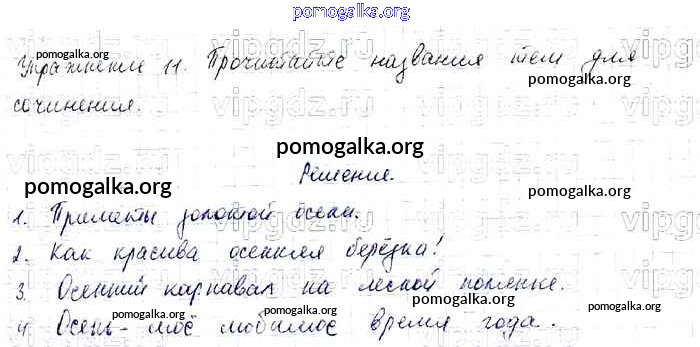 pomogalka.org
pomogalka.org
Упражнение 11. Прочитайте названия тем для
pomogalka.org
сочинения.
pomogalka.org
Решение.
pomogalka.org
pomogalka.org
1. Приметы золотой осени.
2. Как красива осенняя берёзка!
pomogalka.org
3. Осенний карнавал на лесной полянке.
pomogalka.org
pomogalka.org
4. Осень - моё любимое время года.